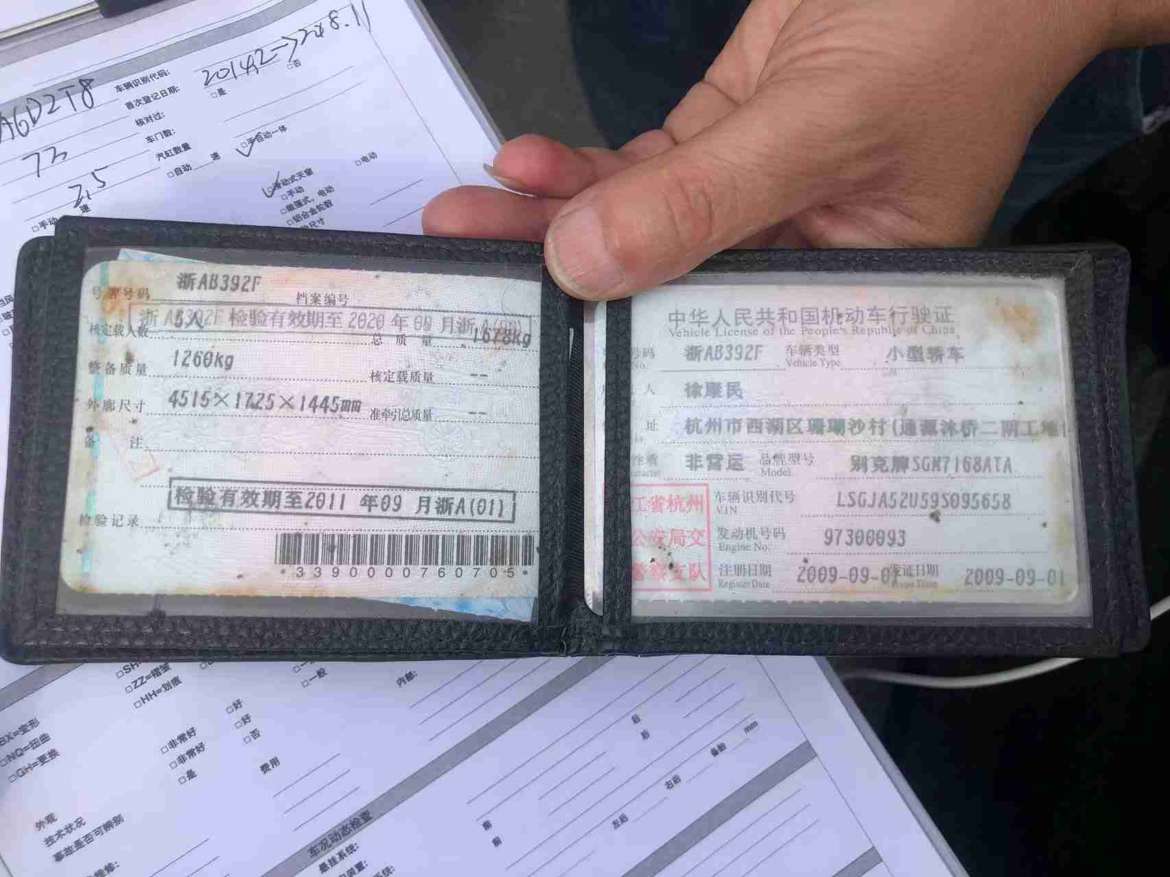 AGD2T8
车辆识别代码:
2014.2->2018.11
首次登记日期:
□是
□否
73
核对过:
车门数:
2.5
汽缸数量
□自动
速
手自动一体
□手动
速
□电动
移动式天窗
□手动
□铝合金轮毂
号牌号码
浙AB392F
档案编号
浙AB392F 检验有效期至2020年09月浙A
核定载人数
5人
总质量
1678kg
整备质量
1260kg
核定载质量
--
外廓尺寸
4515×1725×1445mm
准牵引总质量
--
备注
检验有效期至2011 年09 月浙A(01)
检验记录
*3390000760705*
中华人民共和国机动车行驶证
Vehicle License of the People's Republic of China
号码
No.
浙AB392F
车辆类型
Vehicle Type
小型轿车
人
徐康民
址
杭州市西湖区珊瑚沙村(通源沐桥二期工地
非营运
品牌型号
Model
别克牌SGM7168ATA
江省杭州
公安局交
警察支队
车辆识别代号
VIN
LSGJA52U59S095658
发动机号码
Engine No.
97300093
注册日期
Register Date
2009-09-01
发证日期
Issue Date
2009-09-01
BX=变形
□NQ=扭曲
□GH=更换
□ZZ=褶皱
□HH=划痕
□非常好
□非常好
□是
□好
□好
□否
□一般
内饰:
费用
外观
技术状况
事故是否可辨别
车况动态检查
悬挂系统:
后
后
前
前
左后
右后
备胎
mm